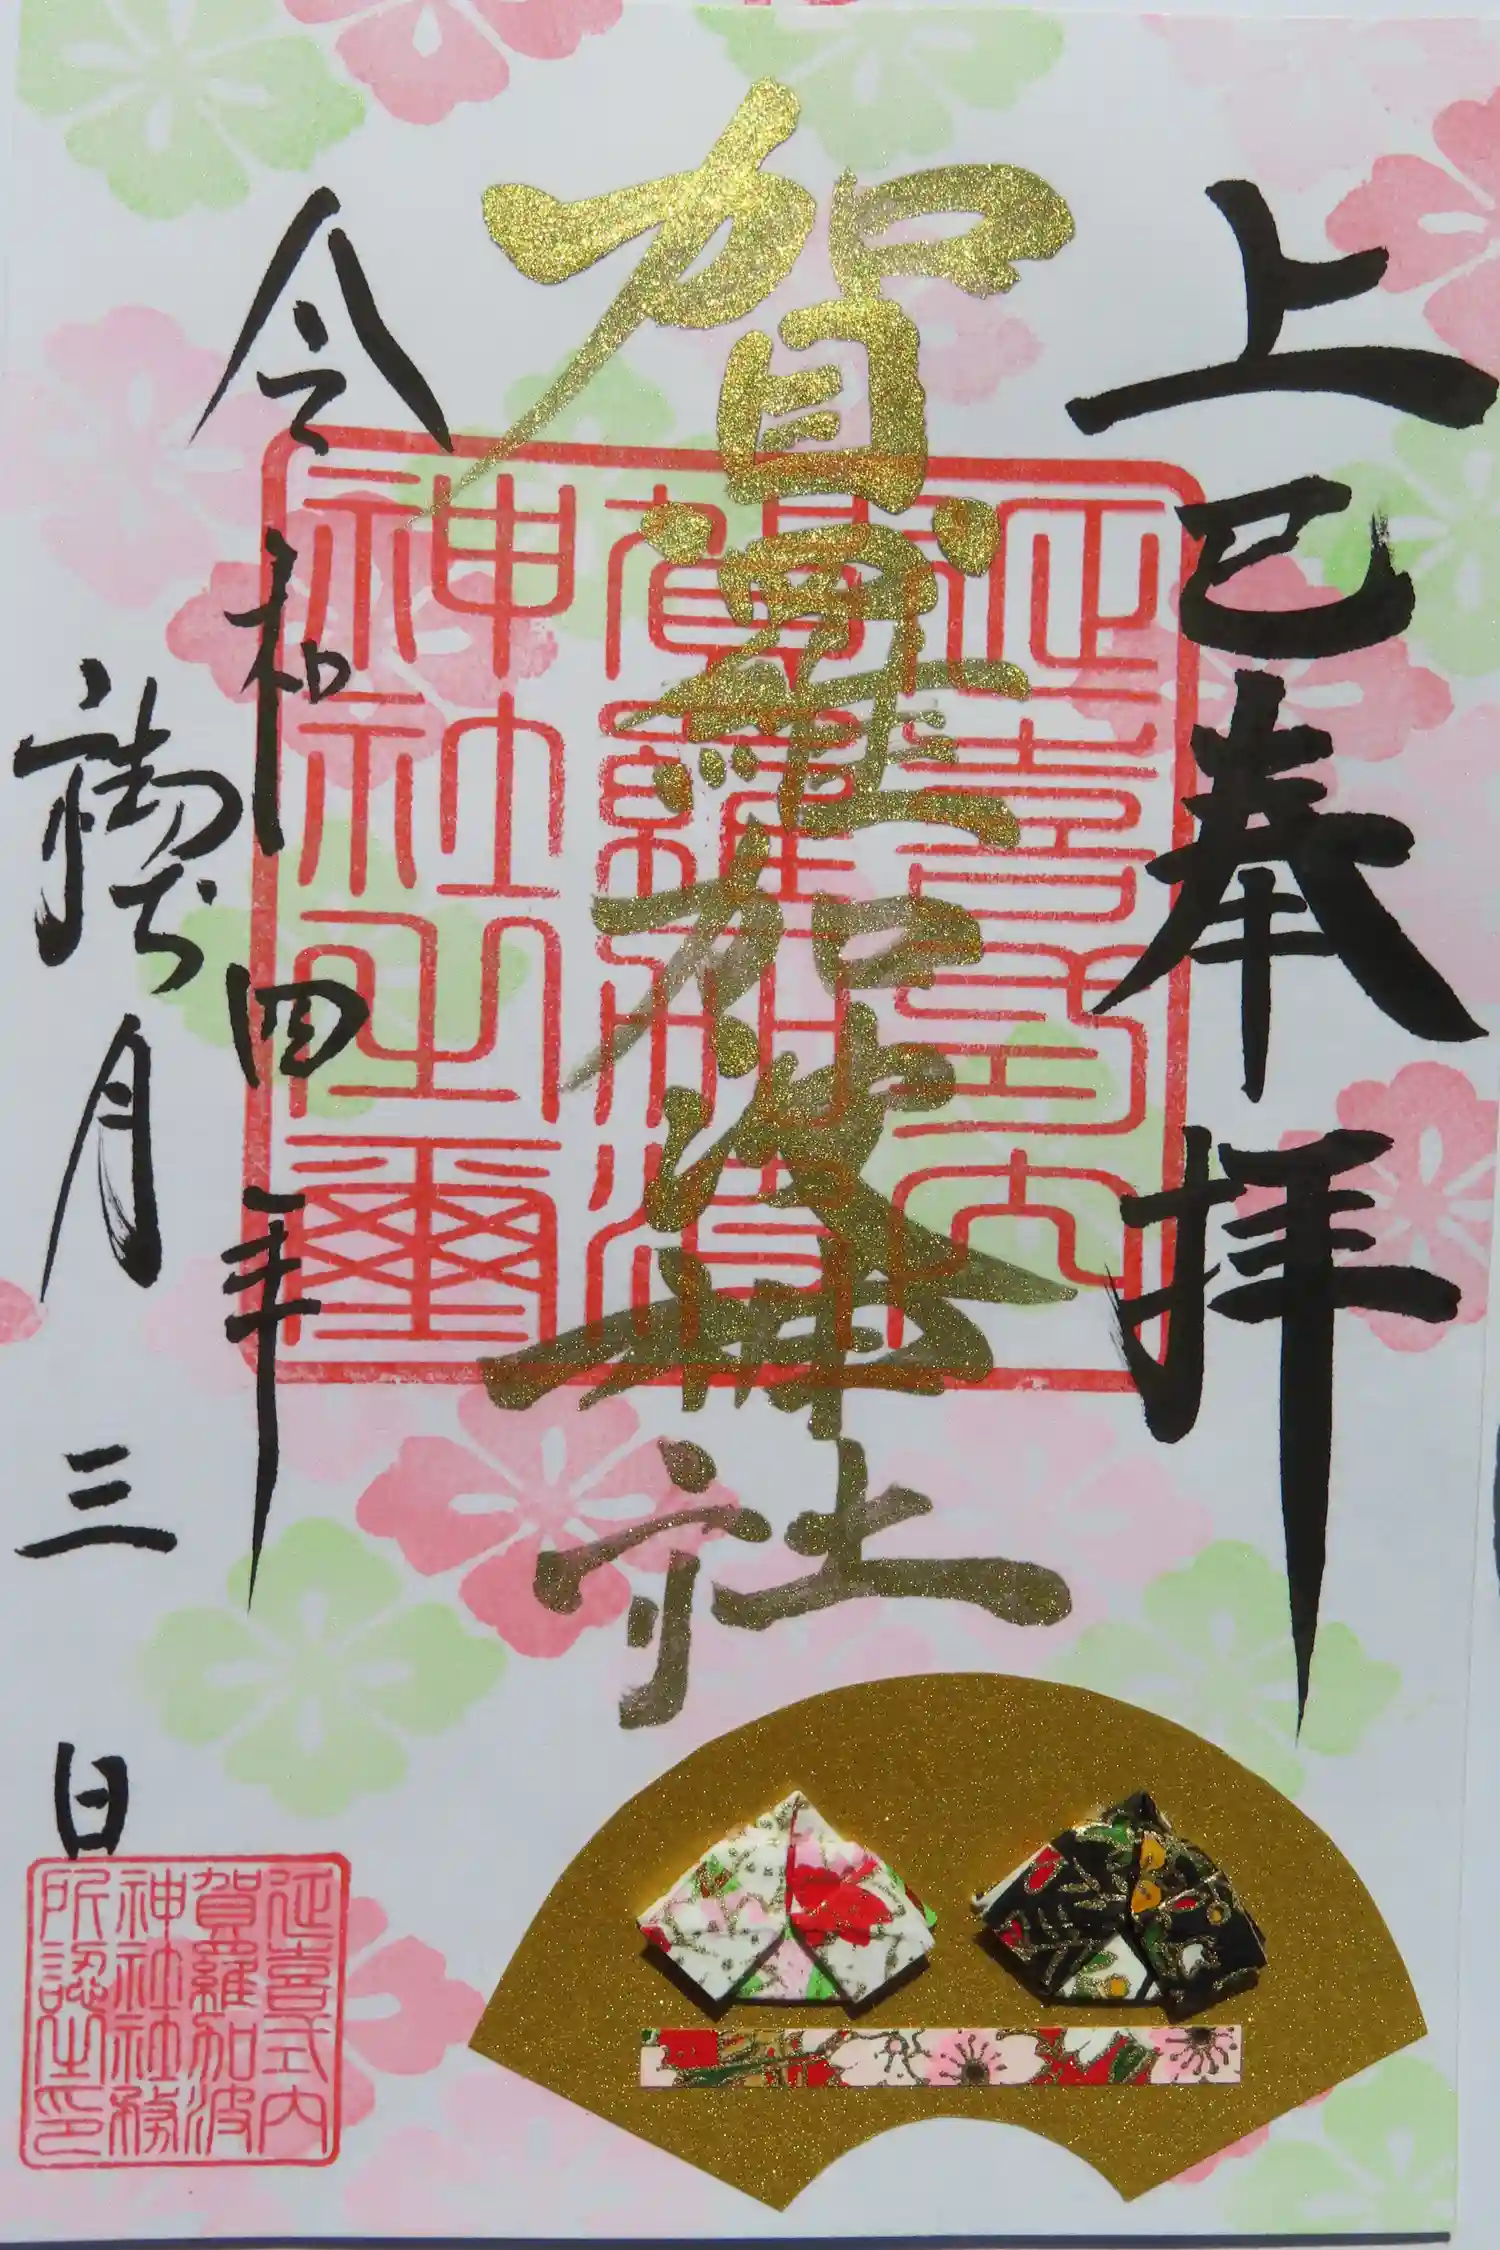 上巳奉拝
賀羅加波神社
令和四年
禊月三日
延喜式内
賀羅加波
神社之璽
延喜式内
賀羅加波
神社社務
所認之印